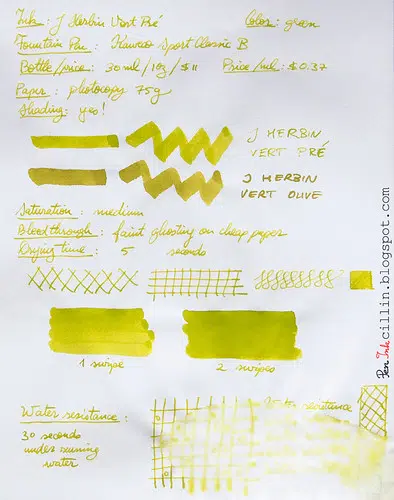 Ink: J Herbin Vert Pré Color: green
Fountain Pen: Kaweco Sport Classic B
Bottle/price: 30ml/10g/$11 Price/ml: $0.37
Paper: photocopy 75g
Shading: yes!
J HERBIN
VERT PRÉ
J HERBIN
VERT OLIVE
Saturation: medium
Bleedthrough: faint ghosting on cheap paper
Drying time: 5 seconds
1 swipe
2 swipes
Water resistance:
30 seconds
under running
water
Water resistance
Pen Ink cillin.blogspot.com